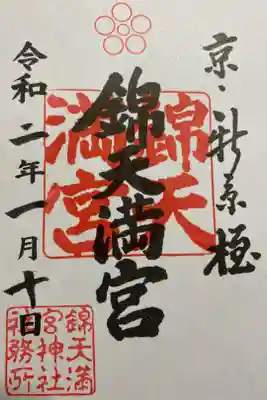 京・新京極
錦天満宮
錦天
満宮
令和二年一月十日
錦天満
宮神社
社務所